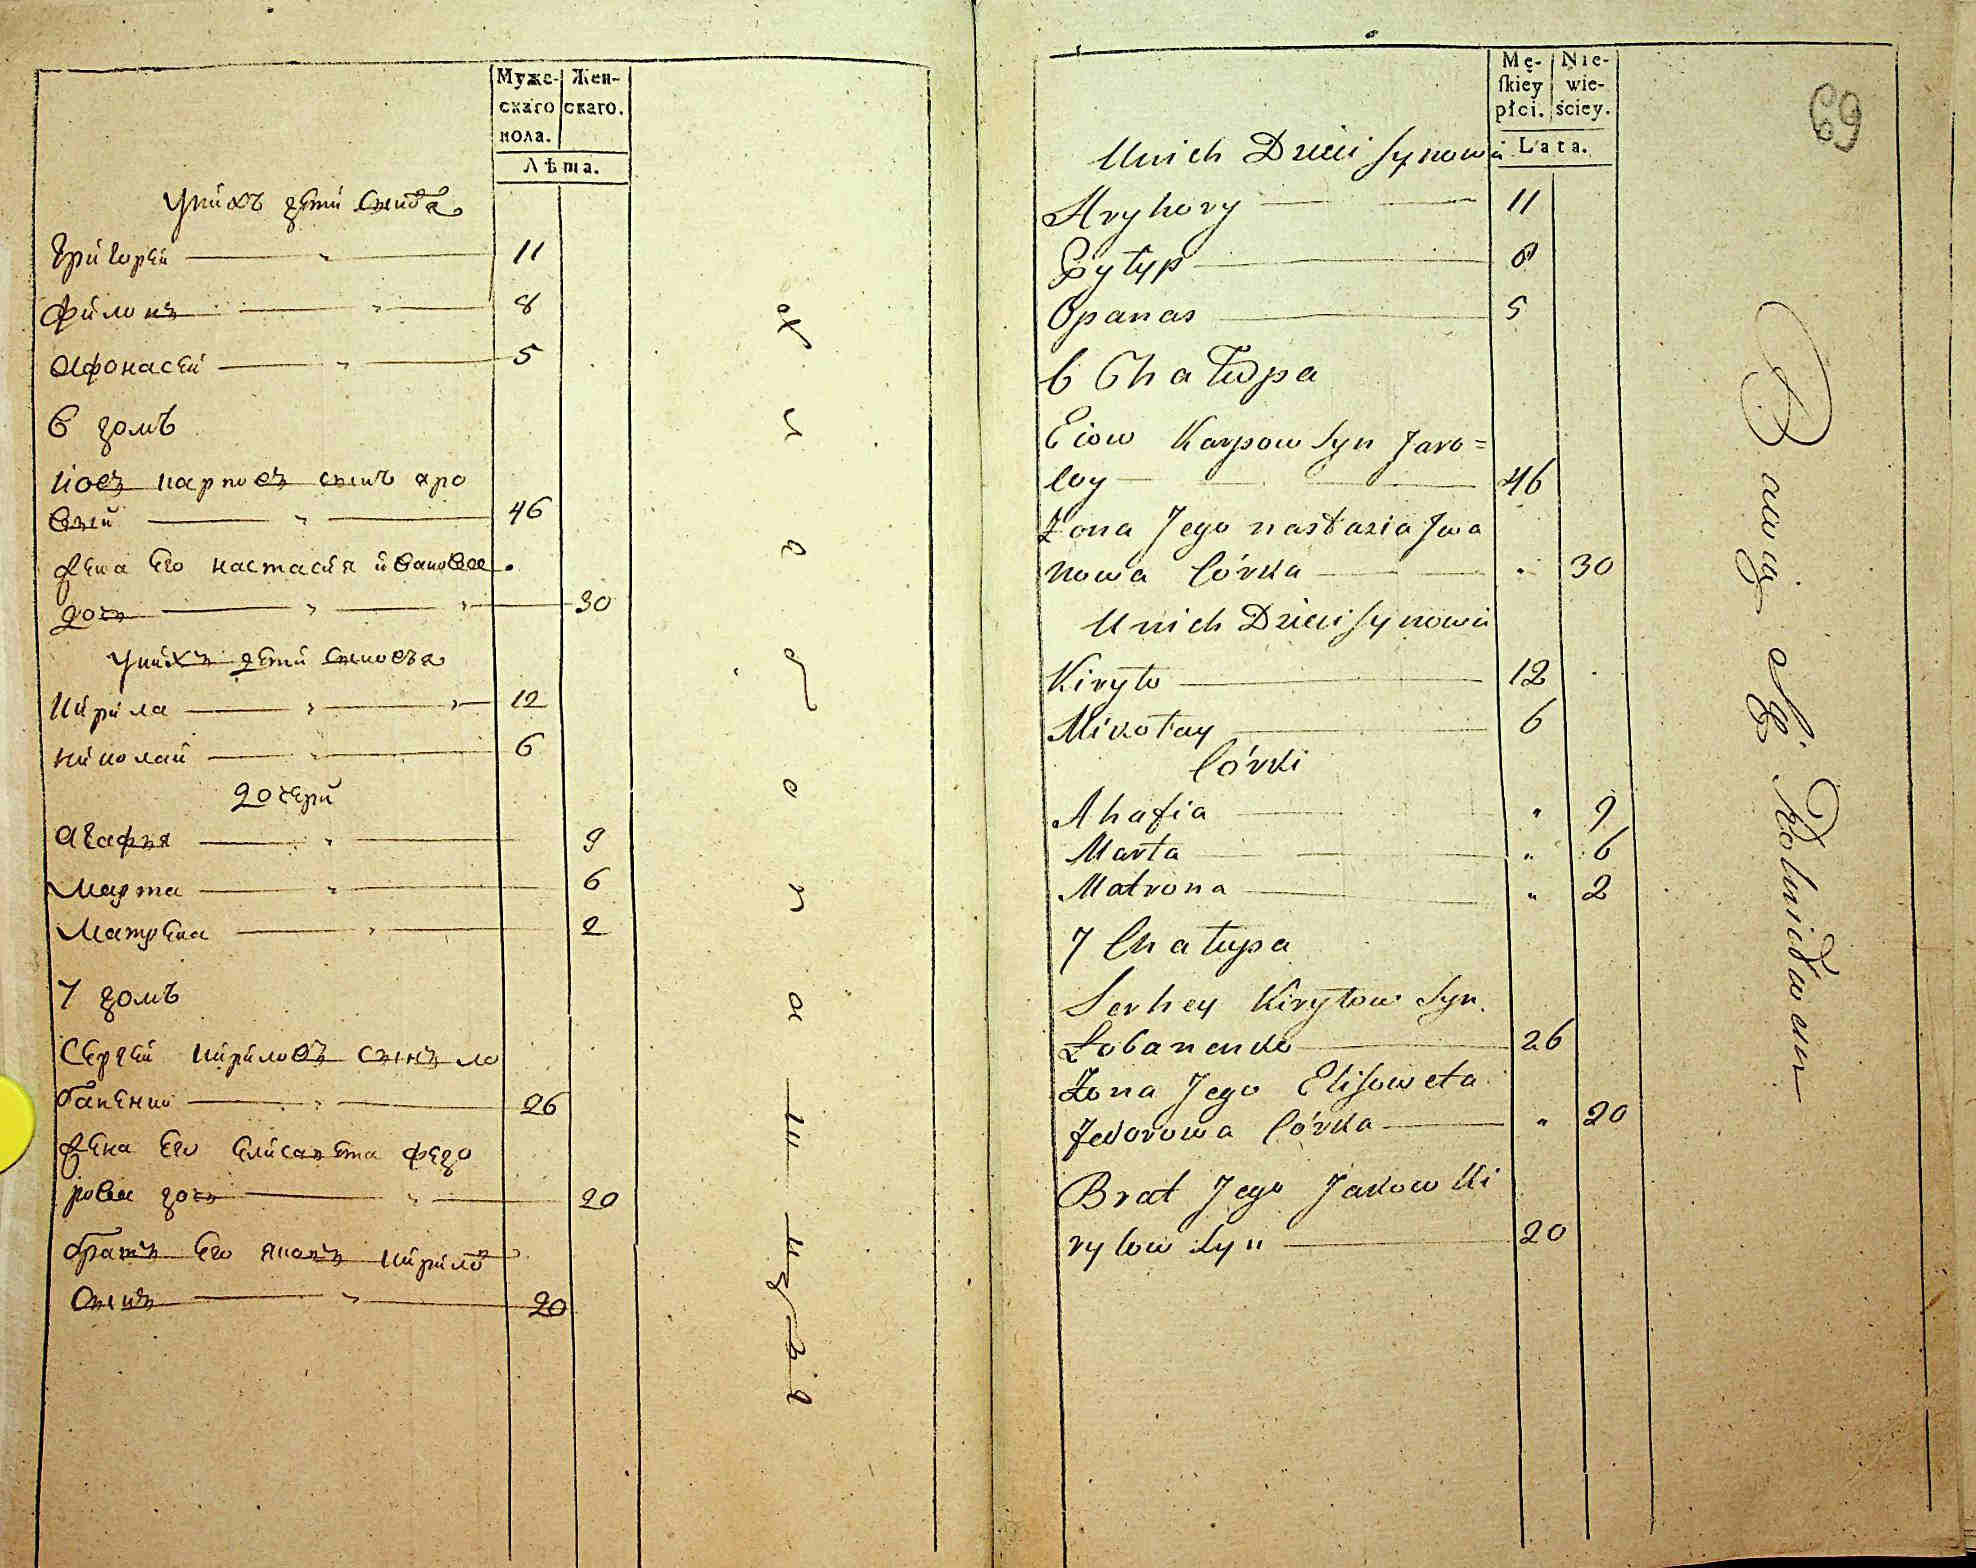 Муже-
скаго
пола.
Жен-
скаго.
Лѣта.
у нихъ дети
Григорей 11
Филонъ 8
Афонасей 5
6 домъ
Иовъ Карповъ сынъ Яро
вый 46
жена его настасия иванова
дочь 30
у нихъ дети сыновья
Кирила 12
николай 6
дочери
Агафия 9
Марта 6
Матрена 2
7 домъ
Сергей Кириловъ сынъ ло
баненко 26
жена его елисавета федо
рова дочь 20
братъ его яковъ кирило
сынъ 20
69
Mę-
skiey
płci.
Nie-
wie-
ściey.
Lata.
Unich Dzieci Synowie
Hryhory 11
8
Opanas 5
6 Chałupa
Eiow Karpow Syn Jaro=
woy 46
Żona Jego nastazia Jwa
nowa Córka 30
Unich Dzieci Synowie
Kiryło 12
Mikołay 6
Córki
Ahafia 9
Marta 6
Matrona 2
7 Chałupa
Serhey Kiryłow Syn
Łobanenko 26
Żona Jego Elisoweta
Fedorowa Córka 20
Brat Jego Jakow Ki
ryłow Syn 20
Bawią się Rolnictwem